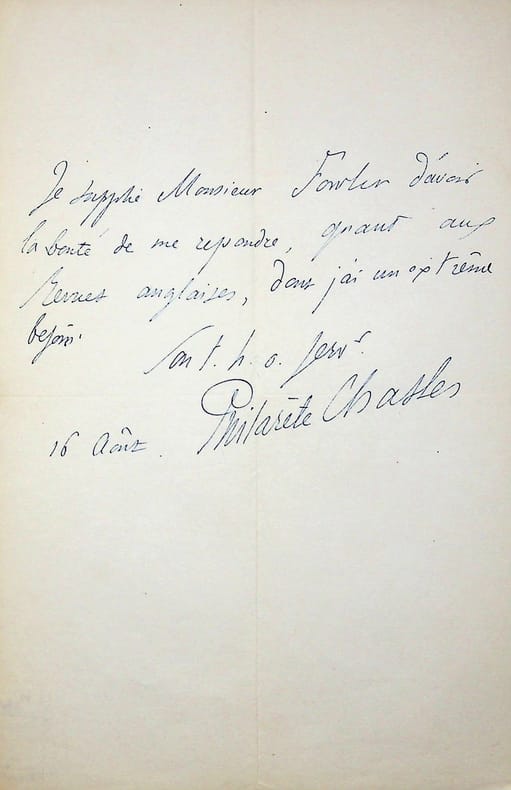 Je supplie Monsieur Fowler d'avoir
la bonté de me repondre, quant aux
Revues anglaises, dont j'ai un extrême
besoin.
Son t. h. o. serv^r.
Philarète Chasles
16 Août.